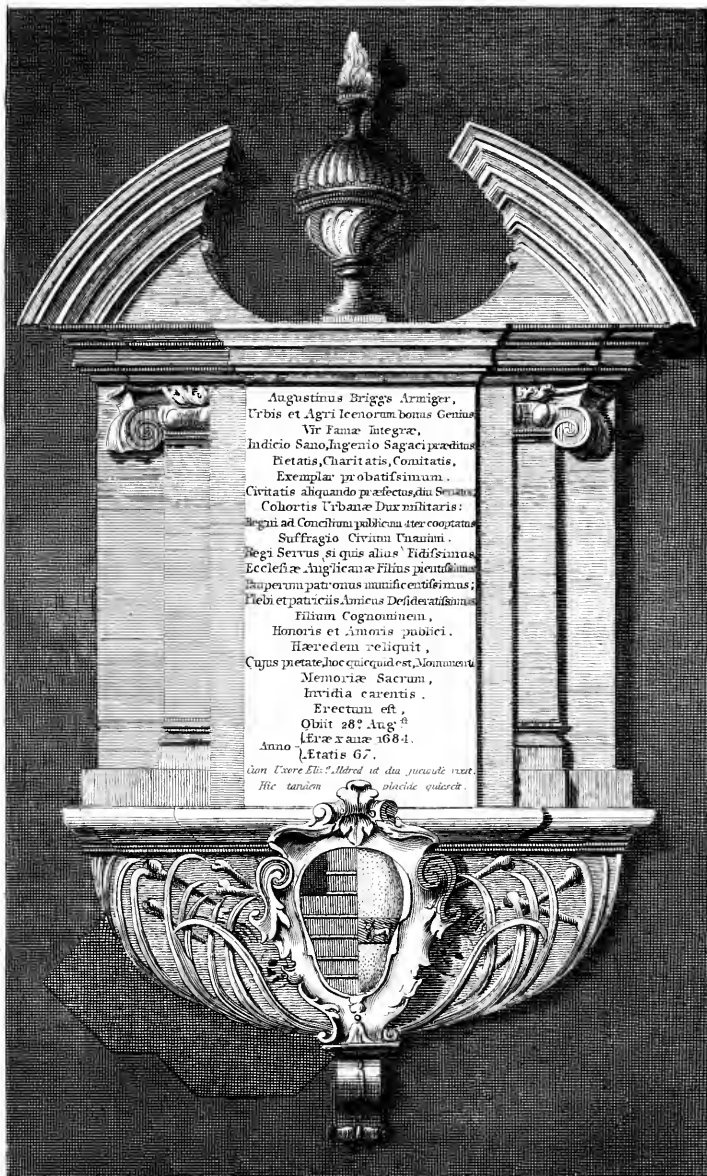 Augustinus Briggs Armiger,
Urbis et Agri Icenorum bonus Genius
Vir Famæ Integræ,
Indicio Sano, Ingenio Sagaci præditus
Pietatis, Charitatis, Comitatis,
Exemplar probatiſsimum.
Civitatis aliquando præfectus, diu Senator,
Cohortis Urbanæ Dux militaris:
Regni ad Concilium publicum 4ter cooptatus
Suffragio Civium Unanimi.
Regi Servus, si quis alius Fidiſsimus
Eccleſiæ Anglicanæ Filius pientiſsimus
Pauperum patronus munificentiſsimus;
Plebi et patriciis Amicus Deſideratiſsimus
Filium Cognominem,
Honoris et Amoris publici.
Hæredem reliquit,
Cujus pietate, hoc quicquid est, Monumenti
Memoriæ Sacrum,
Invidia carentis.
Erectum eſt,
Obiit 28º Aug ſt
Æræ xanæ 1684.
Anno
Ætatis 67.
Cum Uxore Eliz.ª Aldred ut diu jucundè vixit.
Hic tandem placide quiescit.